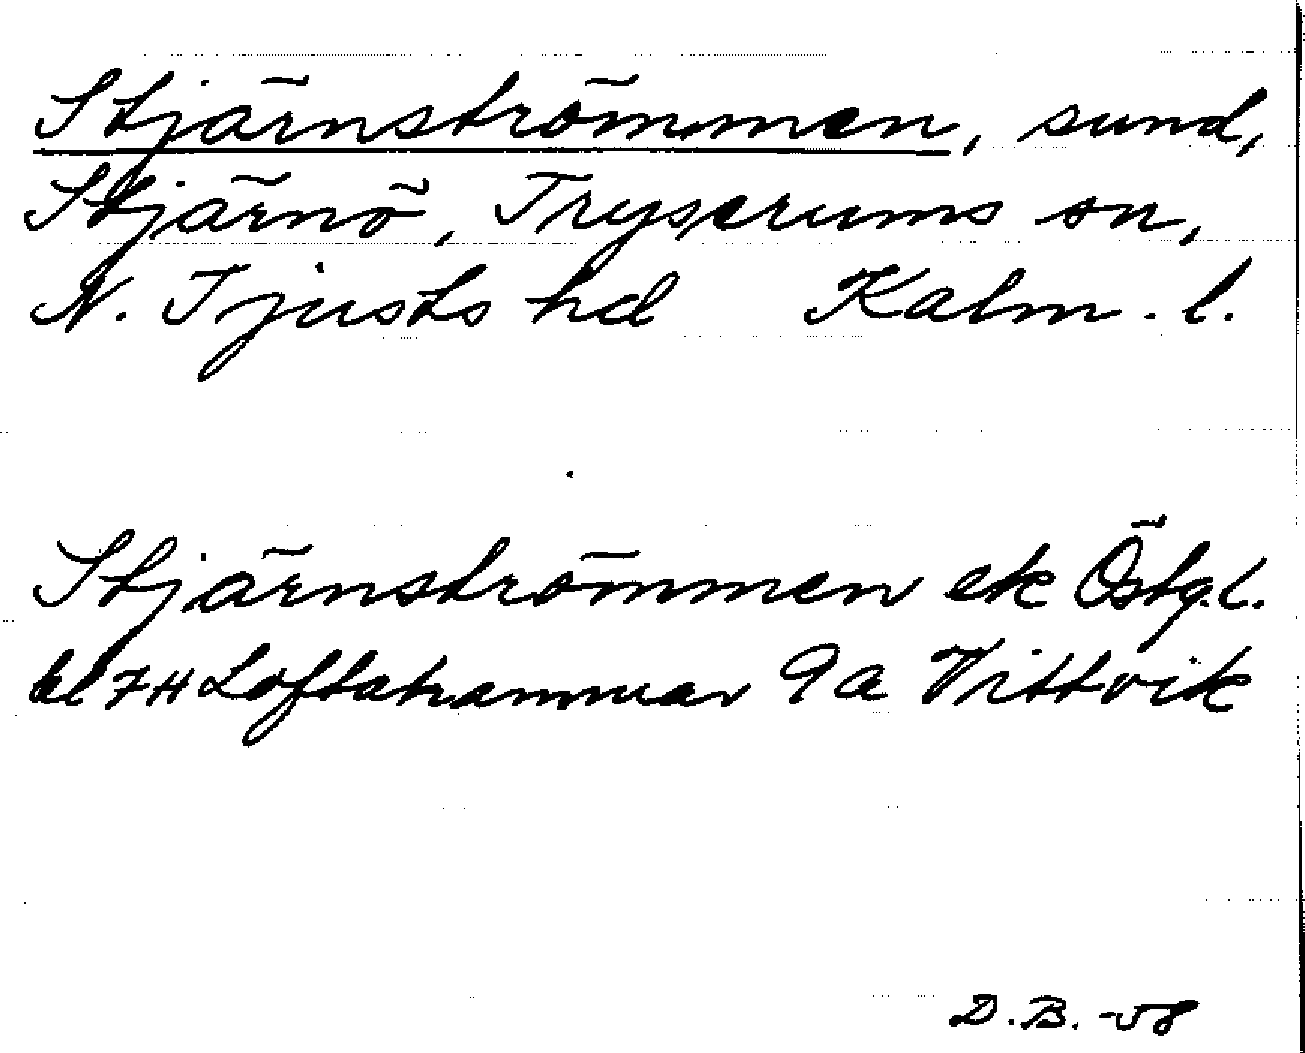 Stjärnströmmen, sund,
Stjärnö, Tryserums sn,
N. Tjusts hd Kalm. l.
Stjärnströmmen ek Östg.l.
bl 7H Loftahammar 9a Vittvik
D.B. -58